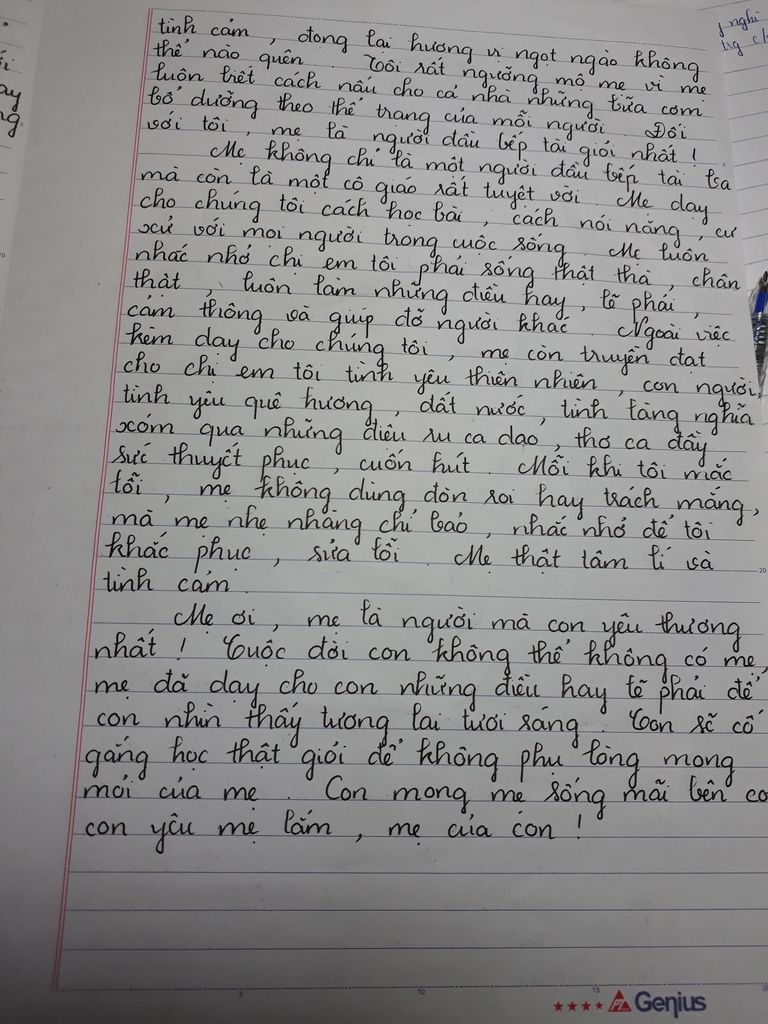 tình cảm, đong lại hương vị ngọt ngào không
thế nào quên. Tôi rất ngưỡng mộ mẹ vì mẹ
luôn biết cách nấu cho cả nhà những bữa cơm
bổ dưỡng theo thể trạng của mỗi người. Đối
với tôi, mẹ là người đầu bếp tài giỏi nhất!
Mẹ không chỉ là một người đầu bếp tài ba
mà còn là một cô giáo rất tuyệt vời. Mẹ dạy
cho chúng tôi cách học bài, cách nói năng, cư
xử với mọi người trong cuộc sống. Mẹ luôn
nhắc nhở chị em tôi phải sống thật thà, chân
thật, luôn làm những điều hay, lẽ phải,
cảm thông và giúp đỡ người khác. Ngoài việc
kèm dạy cho chúng tôi, mẹ còn truyền đạt
cho chị em tôi tình yêu thiên nhiên, con người,
tình yêu quê hương, đất nước, tình làng nghĩa
xóm qua những điệu ru ca dao, thơ ca đầy
sức thuyết phục, cuốn hút. Mỗi khi tôi mắc
lỗi, mẹ không dùng đòn roi hay trách mắng,
mà mẹ nhẹ nhàng chỉ bảo, nhắc nhở để tôi
khắc phục, sửa lỗi. Mẹ thật tâm lí và
tình cảm.
Mẹ ơi, mẹ là người mà con yêu thương
nhất! Cuộc đời con không thể không có mẹ,
mẹ đã dạy cho con những điều hay lẽ phải để
con nhìn thấy tương lai tươi sáng. Con sẽ cố
gắng học thật giỏi để không phụ lòng mong
mỏi của mẹ. Con mong mẹ sống mãi bên co
con yêu mẹ lắm, mẹ của con!
Genius